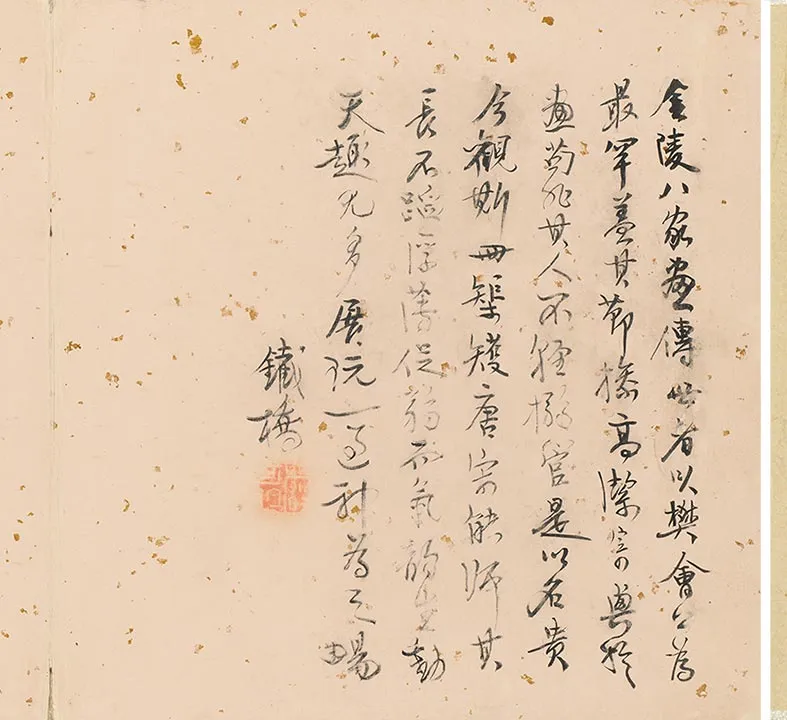 金陵八家畫傳世者以樊會公為
最罕蓋其節操高潔寄興於
畫茍非其人不輕搦管是以名貴
今觀斯冊榘矱唐宋能師其
長不蹈浮薄促弱而氣韵生動
天趣尤多展玩一過神為之暢
鐵橋